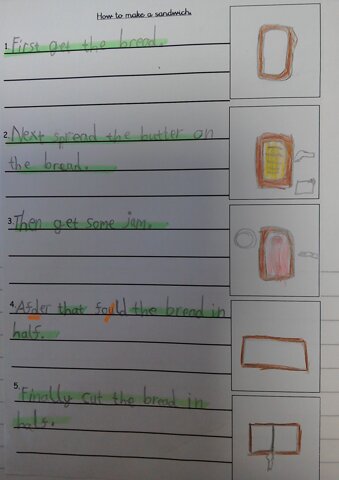 How to make a sandwich.
1. First get the bread.
2. Next spread the butter on
the bread.
3. Then get some jam.
4. Afder that fould the bread in
half.
5. Finally cut the bread in
hals.